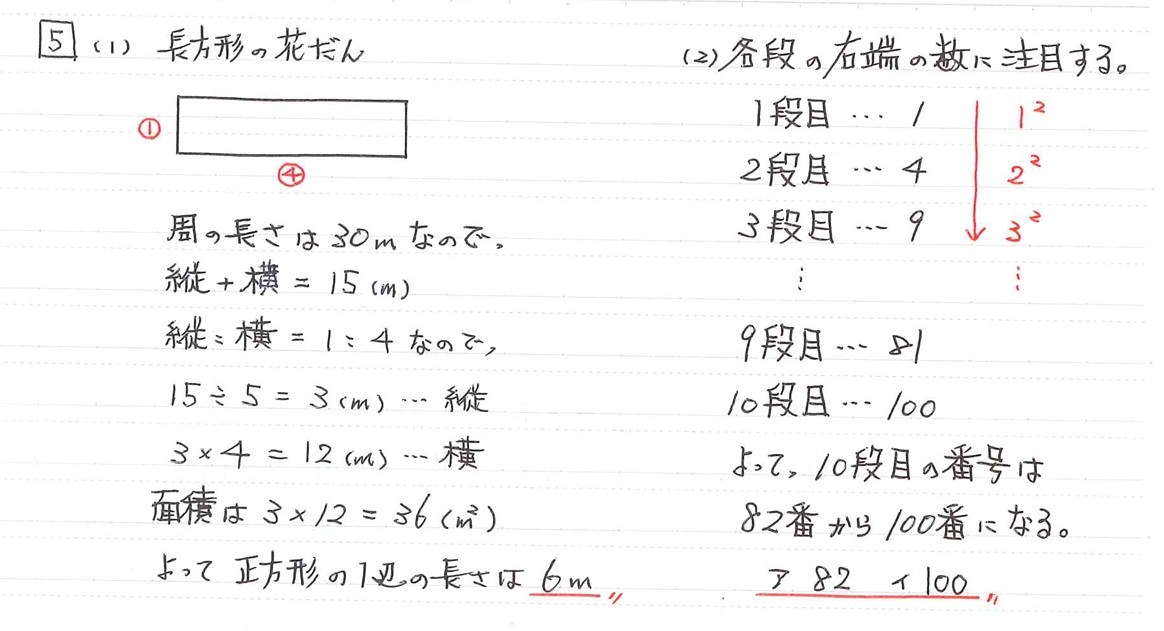 5 (1) 長方形の花だん
①
④
周の長さは30mなので、
縦+横=15(m)
縦:横=1:4なので、
15÷5=3(m)…縦
3×4=12(m)…横
面積は3×12=36(m²)
よって正方形の1辺の長さは6m〃
(2)各段の右端の数に注目する。
1段目…1 1²
2段目…4 2²
3段目…9 3²
⋮ ⋮
9段目…81
10段目…100
よって、10段目の番号は
82番から100番になる。
ア 82 イ 100〃